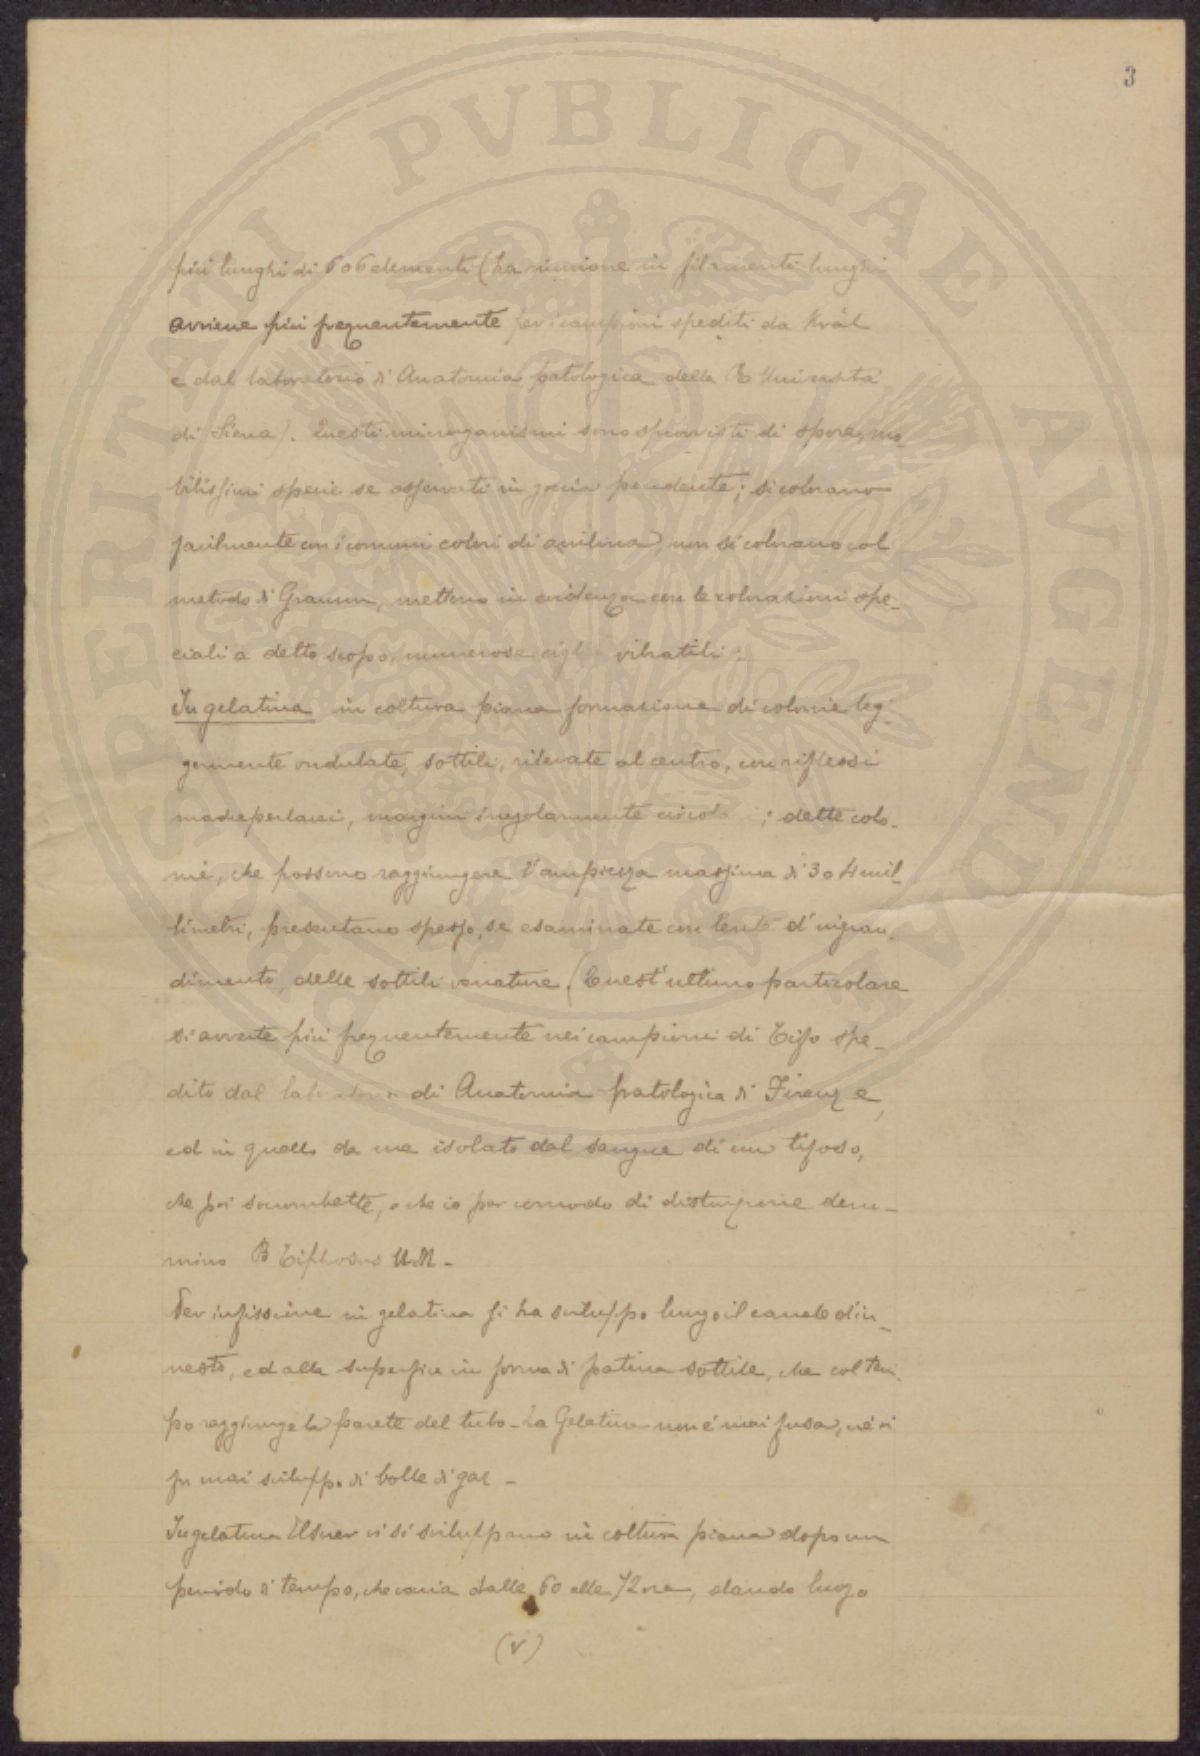 3
più lunghi di 5 o 6 elementi (la riunione in filamenti lunghi
avviene più frequentemente per i campioni spediti da Kràl
e dal laboratorio di Anatomia patologica della R Università
di Siena). Questi microganismi sono sprovvisti di spore, mo-
bilissimi specie se osservati in goccia pendente; si colorano
facilmente con i comuni colori di anilina, non si colorano col
metodo di Gramm, mettono in evidenza con le colorazioni spe-
ciali a detto scopo, numerose ciglia vibratili.
In gelatina in coltura piana formazione di colonie leg-
germente ondulate, sottili, rilevate al centro, con riflessi
madreperlacei, margini irregolarmente ; dette colo-
nie, che possono raggiungere l'ampiezza massima di 3 o 4 mil-
limetri, presentano spesso, se esaminate con lente d'ingran-
dimento, delle sottili venature. (Quest'ultimo particolare
si avverte più frequentemente nei campioni di Tifo spe-
dito dal laboratorio di Anatomia patologica di Firenze,
ed in quello da me isolato dal sangue di un tifoso,
che poi soccombette, e che io per comodo di distinzione deno-
mino B Tiphosus
Per infissione in gelatina si ha sviluppo lungo il canale d'in-
nesto, ed alla superficie in forma di patina sottile, che col tem-
po raggiunge la parete del tubo - La Gelatina non é mai fusa, né vi
fu mai sviluppo di bolle di gas -
In gelatina Elsner vi si sviluppano in coltura piana dopo un
periodo di tempo, che varia dalle 60 alle 72 ore, dando luogo
(V)
PROSPERITATI PVBLICAE AVGENDAE